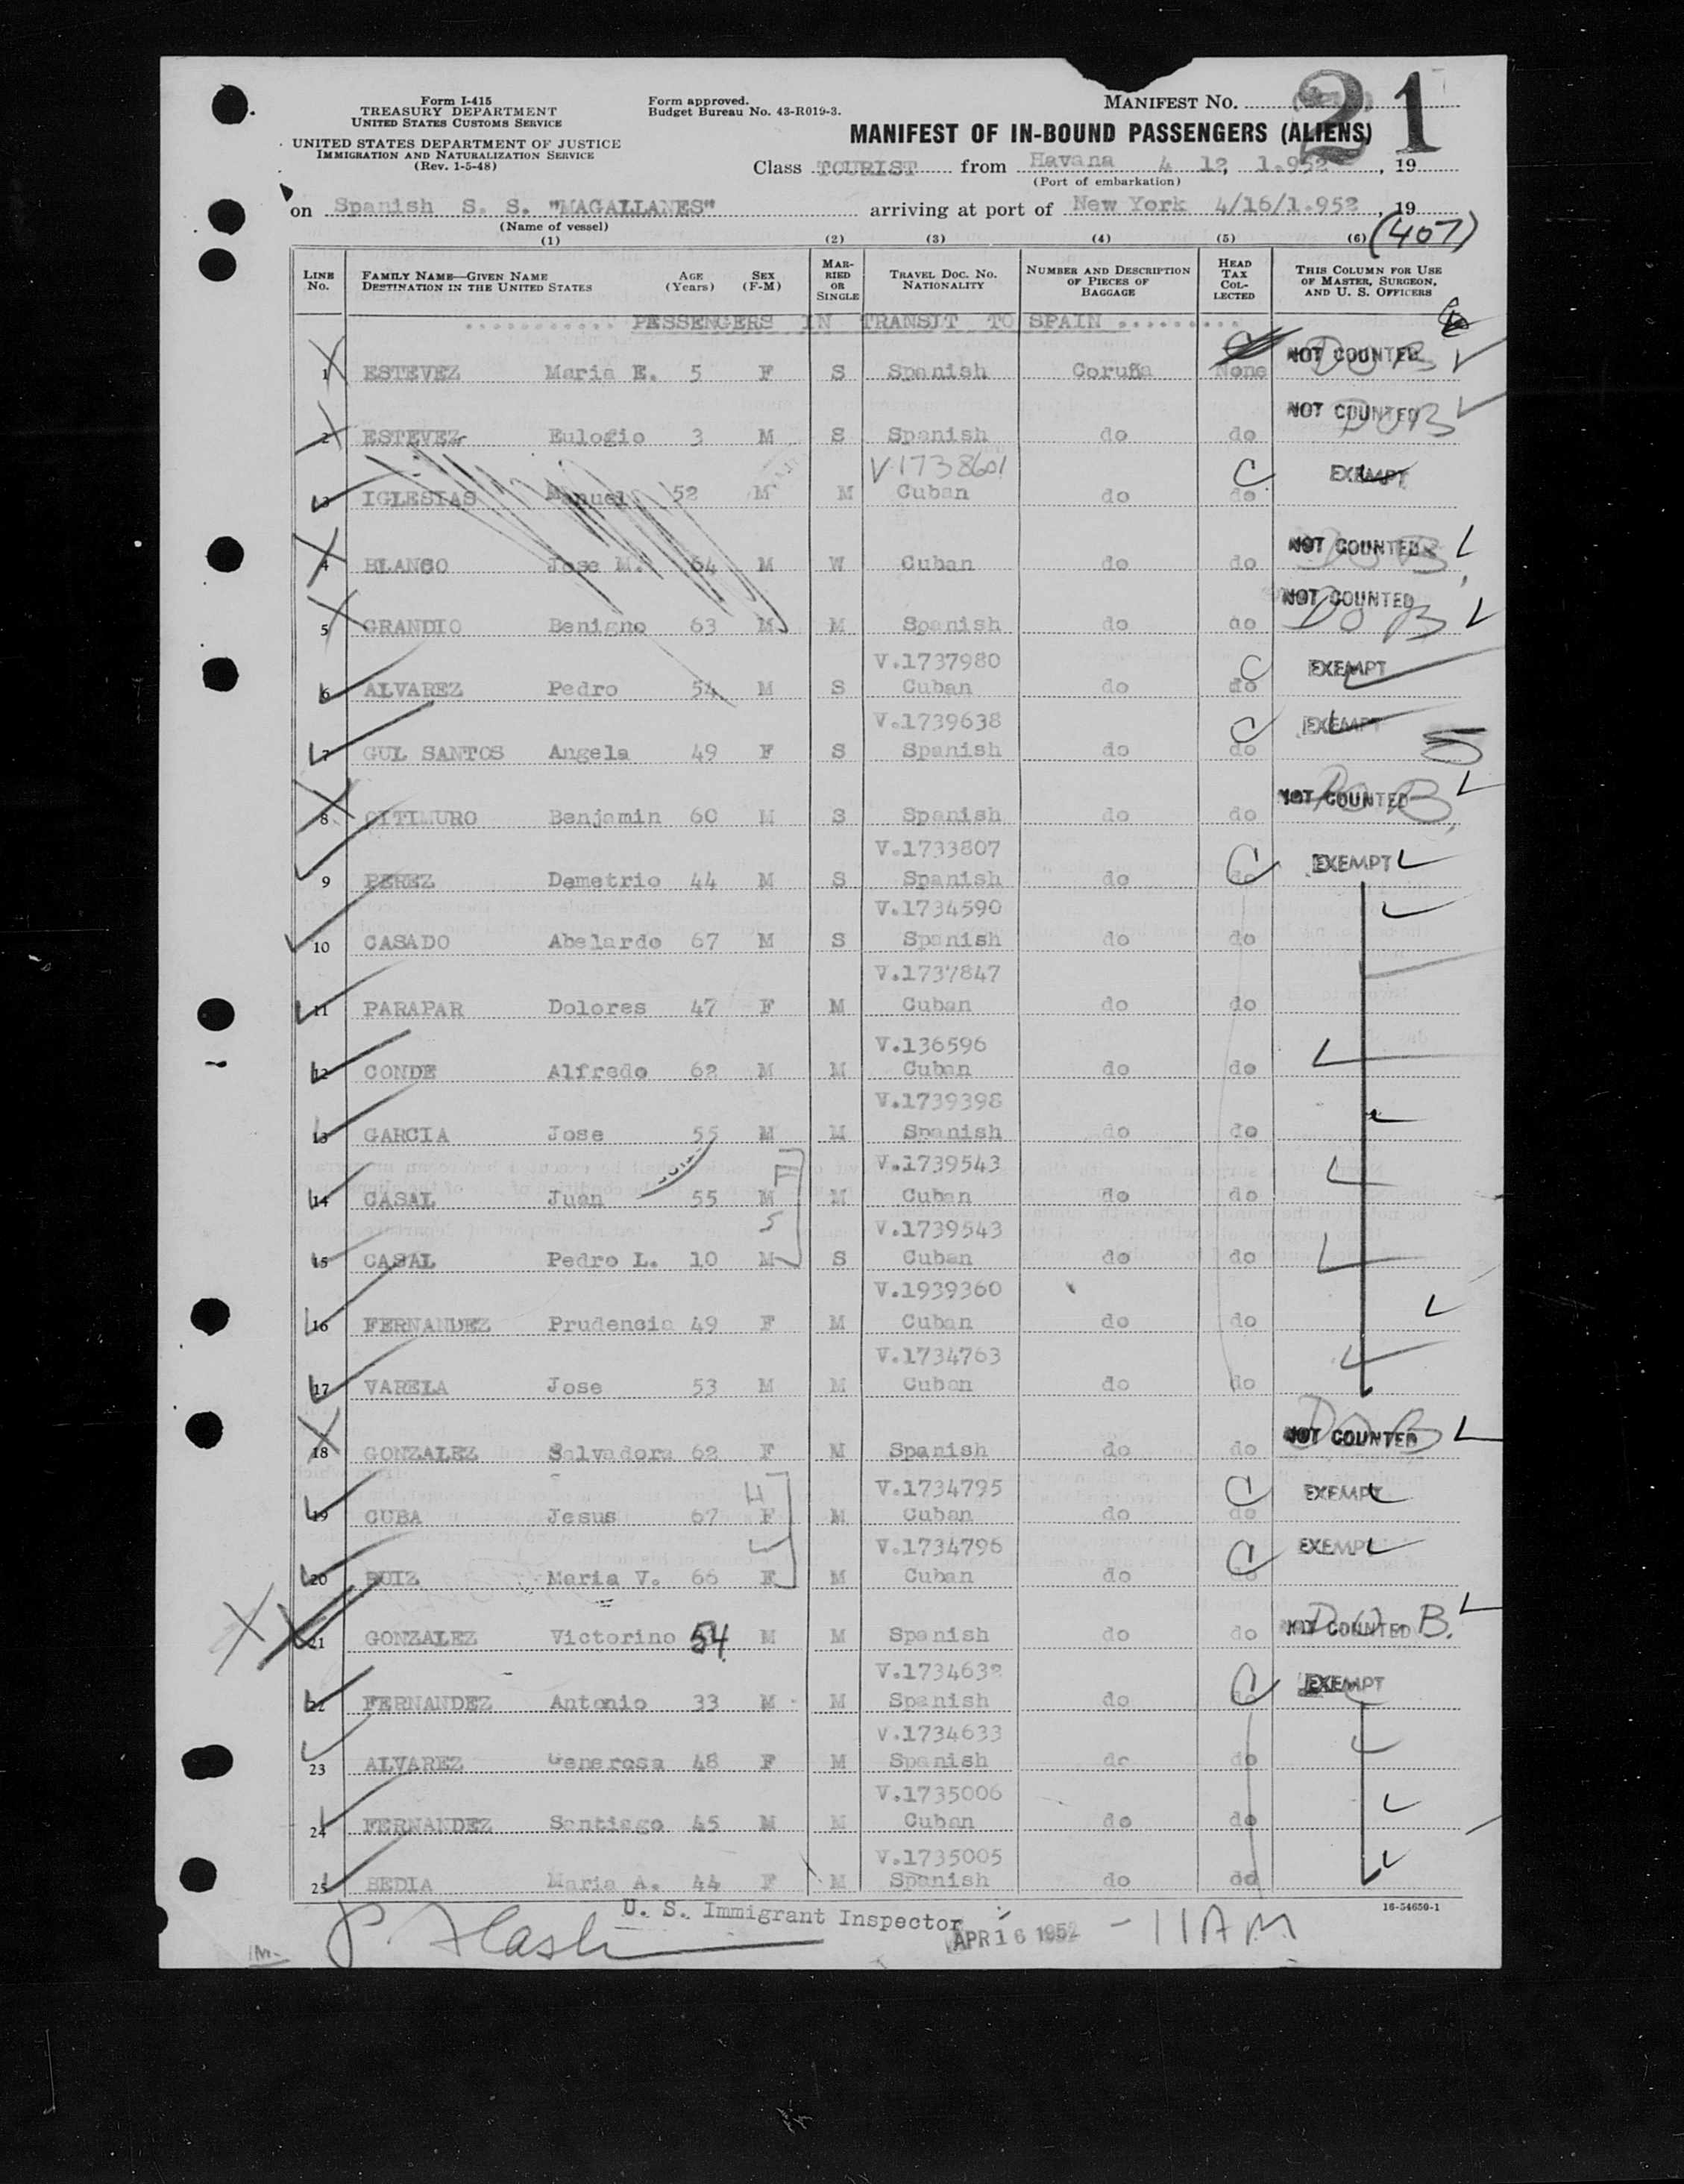 Form I-415
TREASURY DEPARTMENT
UNITED STATES CUSTOMS SERVICE
UNITED STATES DEPARTMENT OF JUSTICE
IMMIGRATION AND NATURALIZATION SERVICE
(Rev. 1-5-48)
Form approved.
Budget Bureau No. 43-R019-3.
MANIFEST No. 21
MANIFEST OF IN-BOUND PASSENGERS (ALIENS)
Class TOURIST from Havana 4 12, 1.952, 19
(Port of embarkation)
on Spanish S. S. "MAGALLANES" arriving at port of New York 4/16/1.952, 19
(Name of vessel)
(407)
(1) (2) (3) (4) (5) (6)
LINE No. FAMILY NAME—GIVEN NAME DESTINATION IN THE UNITED STATES AGE (Years) SEX (F-M) MARRIED OR SINGLE TRAVEL DOC. No. NATIONALITY NUMBER AND DESCRIPTION OF PIECES OF BAGGAGE HEAD TAX COLLECTED THIS COLUMN FOR USE OF MASTER, SURGEON, AND U. S. OFFICERS
........... PASSENGERS IN TRANSIT TO SPAIN .........
1 ESTEVEZ Maria E. 5 F S Spanish Coruña None NOT COUNTED DOB
2 ESTEVEZ Eulogio 3 M S Spanish do do NOT COUNTED DOB
V1738601 C EXEMPT
3 IGLESIAS Manuel 52 M M Cuban do do
4 BLANCO Jose M. 64 M W Cuban do do NOT COUNTED DOB
5 GRANDIO Benigno 63 M M Spanish do do NOT COUNTED DOB
V.1737980 C EXEMPT
6 ALVAREZ Pedro 54 M S Cuban do do
V.1739638 C EXEMPT
7 GUL SANTOS Angela 49 F S Spanish do do 5
8 OITIMURO Benjamin 60 M S Spanish do do NOT COUNTED DOB
V.1733807 C EXEMPT
9 PEREZ Demetrio 44 M S Spanish do do
V.1734590
10 CASADO Abelardo 67 M S Spanish do do
V.1737847
11 PARAPAR Dolores 47 F M Cuban do do
V.136596
12 CONDE Alfredo 62 M M Cuban do do
V.1739398
13 GARCIA Jose 55 M M Spanish do do
F V.1739543
14 CASAL Juan 55 M M Cuban do do
S V.1739543
15 CASAL Pedro L. 10 M S Cuban do do
V.1939360
16 FERNANDEZ Prudencia 49 F M Cuban do do
V.1734763
17 VARELA Jose 53 M M Cuban do do
18 GONZALEZ Salvadora 62 F M Spanish do do NOT COUNTED DOB
H V.1734795 C EXEMPT
19 CUBA Jesus 67 F M Cuban do do
V.1734796 C EXEMPT
20 RUIZ Maria V. 66 F M Cuban do
21 GONZALEZ Victorino 54 M M Spanish do do NOT COUNTED D.O.B.
V.1734632 C EXEMPT
22 FERNANDEZ Antonio 33 M M Spanish do do
V.1734633
23 ALVAREZ Generosa 48 F M Spanish do do
V.1735006
24 FERNANDEZ Santiago 45 M M Cuban do do
V.1735005
25 BEDIA Maria A. 44 F M Spanish do do
16-54650-1
U. S. Immigrant Inspector
APR 16 1952 - 11 AM